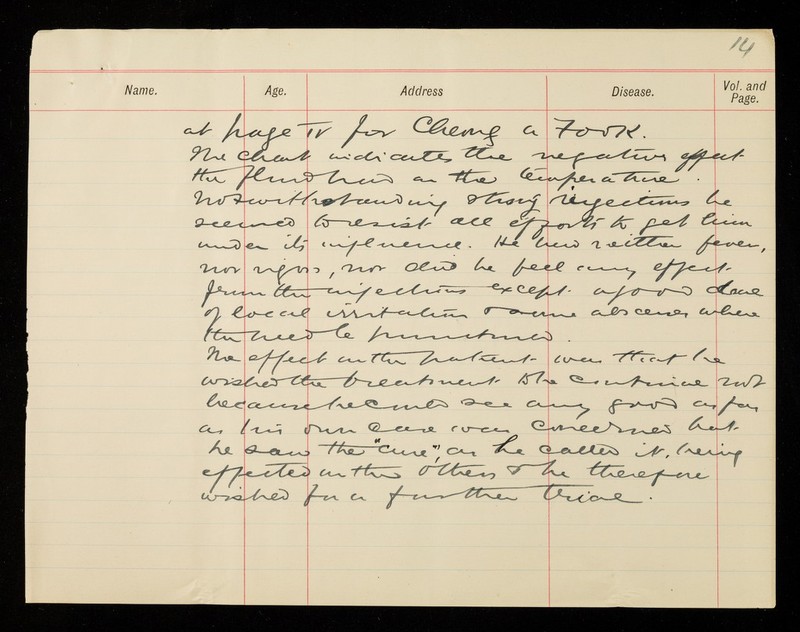 14
Name. Age. Address Disease. Vol. and Page.
at page IV for Cheong a Fook.
The chart indicates the negative effect
the fluid had on the temperature.
Notwithstanding strong injections he
seemed to resist all efforts to get him
under its influence. He had neither fever,
nor rigors, nor did he feel any effect
from the injections except a good deal
of local irritation & some abscesses where
the needle punctured.
The effect on the patient was that he
wished the treatment to be continued not
because he could see any good as far
as his own case was concerned but
he saw the "cure", as he called it, being
effected in the others & he therefore
wished for a further trial.